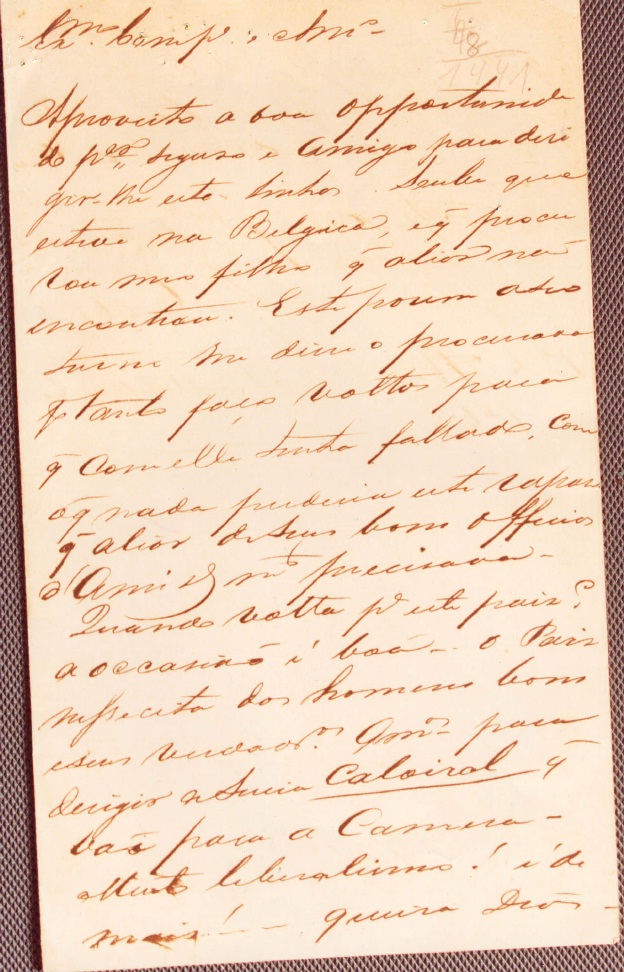 Exmo. Comp.e e Amo.
6
48
1441
Aproveito a boa opportunida
de pes. seguro e Amigo para deri
gir-lhe estas linhas. Soube que
esteve na Belgica, e q procu
rou meu filho q alias não
encontrou. Este porem a seo
turno lhe disse o procurava
q tanto faes voltas para
q com elle tenha fallado, com
o q nada perderia este rapas
q alias de seus bons officios
d'Amigo não precisava-
Quando volta pa este pais?
a occasião é boa - o Pais
nessecita dos homens bons
e seus verdadros. Amos. para
derigir a Sucia Caloiral q
vão para a Camera-
Muito liberalismo! é de
mais! - queira Deos-